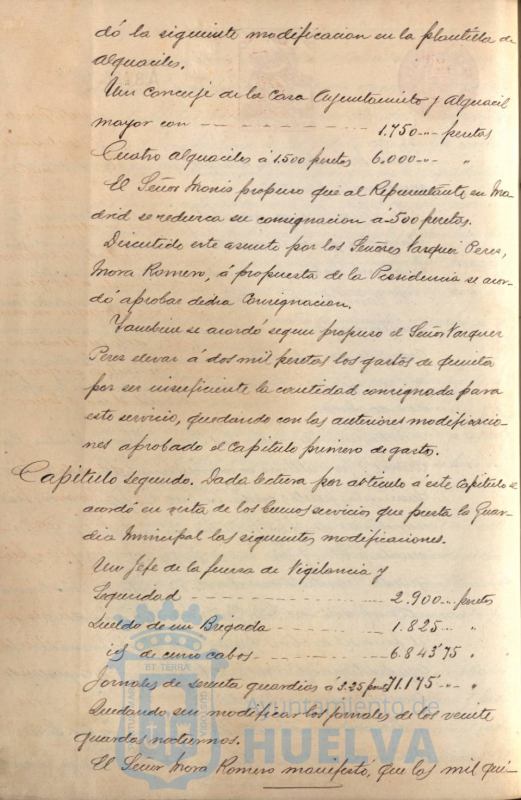 dó la siguiente modificacion en la plantilla de
Alguaciles.
Un conserje de la Casa Ayuntamiento y Alguacil
mayor con — — — — — 1.750 -.- pesetas
Cuatro alguaciles á 1500 pesetas 6.000 -.- "
El Señor Monis propuso que al Representante en Ma
drid se reduzca su consignacion á 500 pesetas.
Discutido este asunto por los Señores Vazquez Perez,
Mora Romero, á propuesta de la Presidencia se acor-
dó aprobar dicha Consignacion.
Tambien se acordó segun propuso el Señor Vazquez
Perez elevar á dos mil pesetas los gastos de quinta
por ser insuficiente la cantidad consignada para
este servicio, quedando con las anteriores modificacio-
nes aprobado el Capitulo primero de gasto.
Capitulo segundo. Dada lectura por articulo á este Capitulo se
acordó en vista de los buenos servicios que presta la Guar-
dia Municipal las siguientes modificaciones.
Un Jefe de la fuerza de Vigilancia y
Seguridad — — — — — 2.900 -.- pesetas
Sueldo de un Brigada — — — 1.825 -.- "
id de cinco cabos — — — — 6.843'75 "
Jornales de sesenta guardias á 3.25 pesetas 71.175 -.- "
Quedando sin modificar los jornales de los veinte
guardas nocturnos.
El Señor Mora Romero manifestó, que las mil qui-
Ayuntamiento de
HUELVA